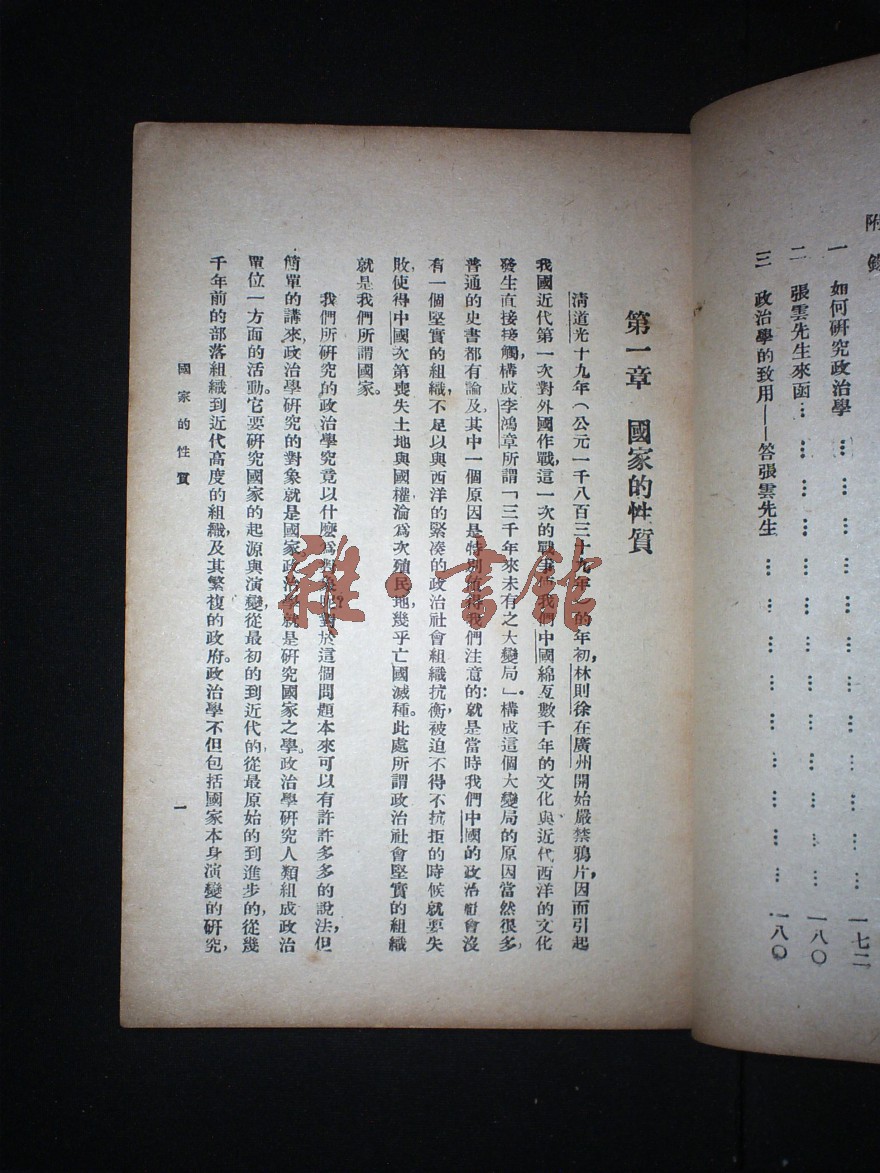 附錄
一 如何研究政治學 … … … … … … … … … … … 一七二
二 張雲先生來函 … … … … … … … … … … … 一八〇
三 政治學的致用——答張雲先生 … … … … … … … … 一八〇
第一章 國家的性質
清道光十九年（公元一千八百三十九年）的年初，林則徐在廣州開始嚴禁鴉片，因而引起
我國近代第一次對外國作戰，這一次的戰事使我們中國綿亙數千年的文化與近代西洋的文化
發生直接接觸，構成李鴻章所謂「三千年來未有之大變局」。構成這個大變局的原因當然很多，
普通的史書都有論及，其中一個原因是特別值得我們注意的：就是當時我們中國的政治社會沒
有一個堅實的組織，不足以與西洋的緊凑的政治社會組織抗衡，被迫不得不抗拒的時候就要失
敗，使得中國次第喪失土地與國權，淪爲次殖民地，幾乎亡國滅種。此處所謂政治社會堅實的組織
就是我們所謂國家。
我們所研究的政治學究竟以什麼爲對象呢？對於這個問題本來可以有許許多多的說法，但
簡單的講來，政治學研究的對象就是國家，政治學就是研究國家之學。政治學研究人類組成政治
單位一方面的活動。它要研究國家的起源與演變，從最初的到近代的，從最原始的到進步的，從幾
千年前的部落組織到近代高度的組織，及其繁複的政府。政治學不但包括國家本身演變的研究，
國家的性質
一
雜·書館